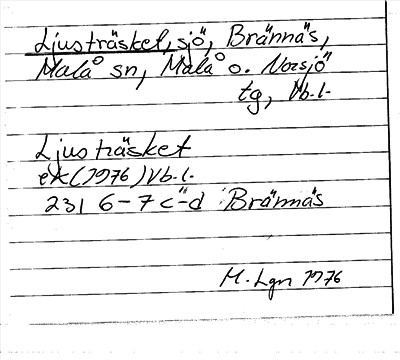 Ljusträsket, sjö, Brännäs,
Malå sn, Malå o. Norsjö
tg, Vb.l.
Ljusträsket
ek (1976) Vb.l.
231 6-7 c-d Brännäs
M. Lgn 1976